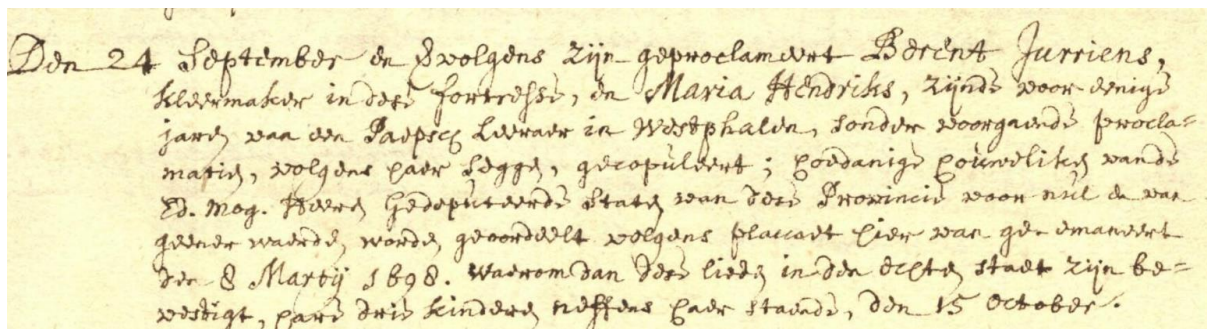 Den 24 September en vvolgens zijn geproclameert Berent Jurriens,
kleermaker in dese fortresse, en Maria Hendriks, zijnde voor eenige
jaren van een Paepsch Leeraer in Westphalen, sonder voorgaende procla=
matien, volgens haer seggen, gecopuleert; hoedanige houweliken van de
Ed. Mog. Heeren Gedeputeerde Staten van dese Provincie voor nul en van
geener waerden worden geoordeelt volgens placcaet hier van ge-emaneert
den 8 Martij 1698. Waerom dan dese lieden in den echten staet zijn be=
vestigt, hare drie kinderen neffens haer staende, den 15 October.